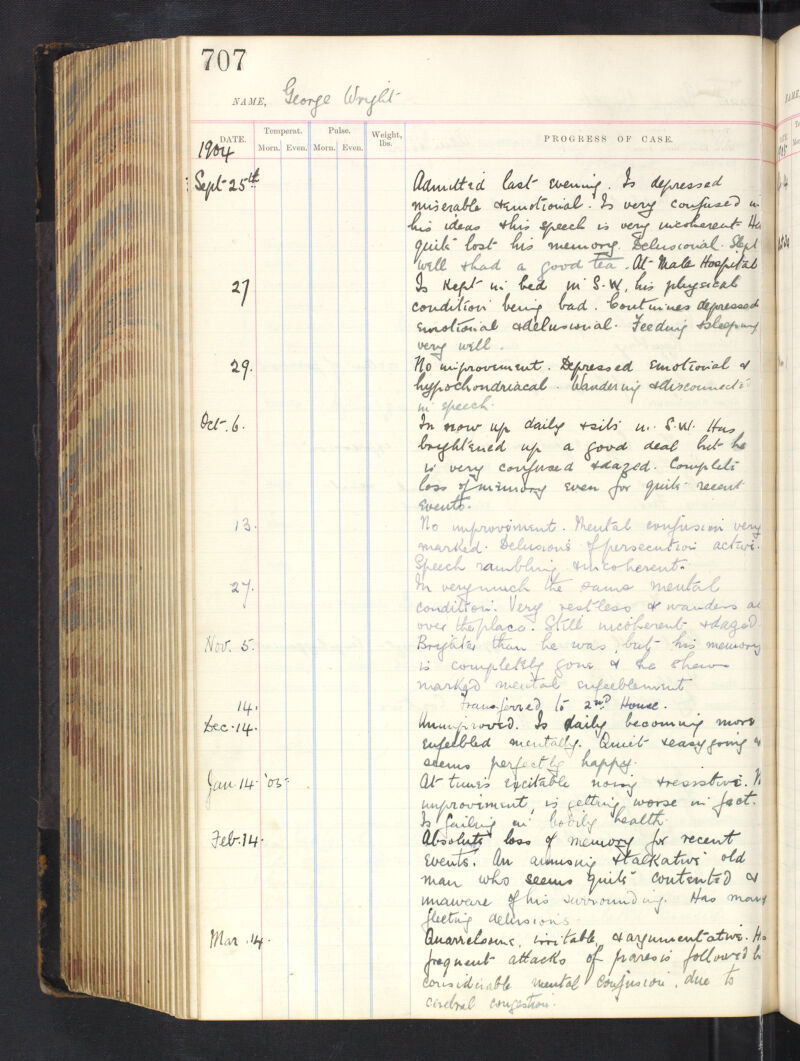 707
NAME, George Wright
DATE. Temperat. Pulse. Weight, lbs. PROGRESS OF CASE.
Morn. Even. Morn. Even.
1904
Sept 25th Admitted last evening. Is depressed
miserable & emotional. Is very confused in
his ideas & his speech is very incoherent. Has
quite lost his memory. Delusional. Slept
well & had a good tea. At Male Hospital
27 Is kept in bed in S.W, his physical
condition being bad. Continues depressed
emotional & delusional. Feeding & sleeping
very well.
29. No improvement. Depressed emotional &
hypochondriacal. Wandering & disconnected
in speech.
Oct. 6. Is now up daily & sits in S.W. Has
brightened up a good deal but he
is very confused & dazed. Complete
loss of memory even for quite recent
events.
13. No improvement. Mental confusion very
marked. Delusions of persecution active.
Speech rambling & incoherent.
27. In very much the same mental
condition. Very restless & wanders al
over the place. Still incoherent & dazed.
Nov. 5. Brighter than he was, but his memory
is completely gone & he shews
marked mental enfeeblement
14. Transferred to 2nd House.
Dec. 14. Unimproved. Is daily becoming more
enfeebled mentally. Quiet & easy going &
seems perfectly happy.
Jan 14 '05 At times excitable noisy & resistive. N
improvement, is getting worse in fact.
Is failing in bodily health.
Feb. 14. Absolute loss of memory for recent
events. An amusing & talkative old
man who seems quite contented &
unaware of his surrounding. Has many
fleeting delusions.
Mar. 14. Quarrelsome, irritable, & argumentative. Ha
frequent attacks of paresis followed b
considerable mental confusion, due to
cerebral congestion.